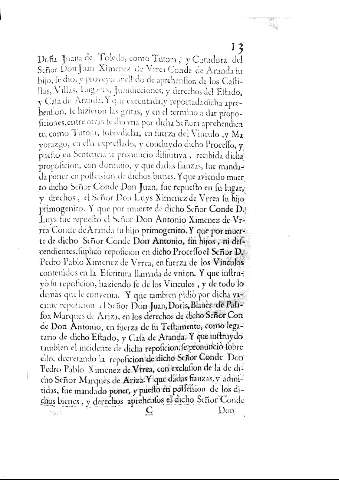 13
Doña Juana de Toledo, como Tutora, y Curadora del
Señor Don Juan Ximenez de Vrrea Conde de Aranda su
hijo, se dió, y proveyó apellido de aprehension de los Casti-
llos, Villas, Lugares, Jurisdiciones, y derechos del Estado,
y Casa de Aranda. Y que executada, y reportada dicha apre-
hension, se hizieron las gritas, y en el termino a dar propo-
siciones, entre otras se dió vna por dicha Señora aprehendien-
te, como Tutora, sobredicha, en fuerza del Vinculo, y Ma
yorazgo, en ella expressado, y concluydo dicho Processo, y
puesto en Sentencia, se pronunció difinitiva, recibida dicha
proposicion, con dominio, y que dadas fianzas, fue manda-
da poner en possession de dichos bienes. Y que aviendo muer
to dicho Señor Conde Don Juan, fue repuesto en su lugar,
y derechos, el Señor Don Luys Ximenez de Vrrea su hijo
primogenito. Y que por muerte de dicho Señor Conde D.
Luys fue repuesto el Señor Don Antonio Ximenez de Vr-
rea Conde de Aranda su hijo primogenito. Y que por muer-
te de dicho Señor Conde Don Antonio, sin hijos, ni des-
cendientes, suplicó reposicion en dicho Processo el Señor D.
Pedro Pablo Ximenez de Vrrea, en fuerza de los Vinculos
contenidos en la Escritura llamada de vnion. Y que instru-
yó su reposicion, haziendo fe de los Vinculos, y de todo lo
demás que le convenia. Y que tambien pidió por dicha va-
cante reposicion el Señor Don Juan, Doris, Blanes de Pala-
fox Marques de Ariza, en los derechos de dicho Señor Con
de Don Antonio, en fuerza de su Testamento, como lega-
tario de dicho Estado, y Casa de Aranda. Y que instruydo
tambien el incidente de dicha reposicion, se pronunció sobre
ello, decretando la reposicion de dicho Señor Conde Don
Pedro Pablo Ximenez de Vrrea, con exclusion de la de di-
cho Señor Marques de Ariza. Y que dadas fianzas, y admi-
tidas, fue mandado poner, y puesto en possession de los di-
chos bienes, y derechos aprehensos el dicho Señor Conde
C Don